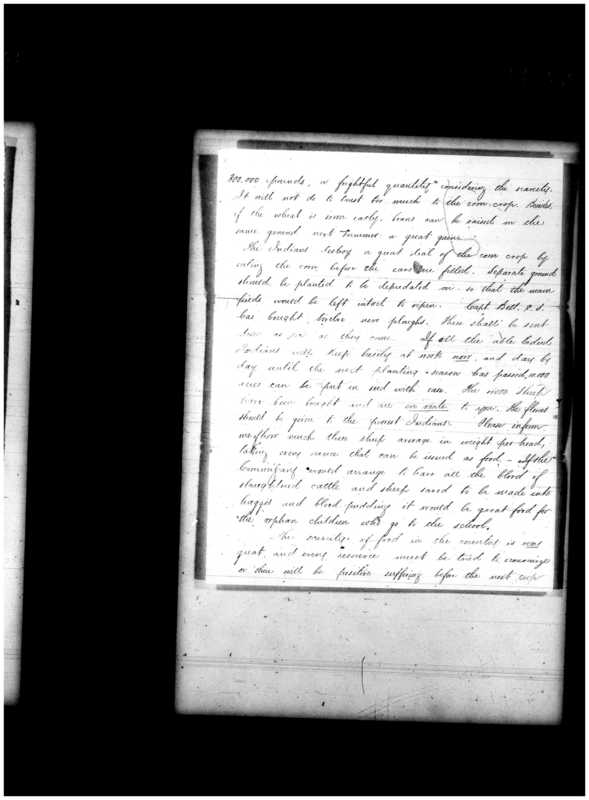 300.000 pounds, a frightful quantity considering the scarcity.
It will not do to trust too much to the corn crop. Besides,
if the wheat is sown early, beans can be raised in the
same ground next Summer a great gain.
The Indians destroy a great deal of the corn crop by
eating the corn before the ears are filled. Separate ground
should be planted to be depredated on so that the main
fields would be left intact to ripen. Capt. Bell, C.S.
has bought twelve new ploughs. These shall be sent
down as soon as they come. If all the able bodied
Indians will keep busily at work now, and day by
day until the next planting season has passed,
acres can be put in seed with ease. The 5000 sheep
have been bought and are en route to you. The fleeces
should be given to the poorest Indians. Please inform
me how much these sheep average in weight per head,
taking every ounce that can be issued as food. If the
Commissary would arrange to have all the blood of
slaughtered cattle and sheep saved to be made into
haggis and blood puddings it would be great food for
the orphan children who go to the school.
The scarcity of food in the country is very
great and every resource must be tried to economize
or there will be positive suffering before the next crop